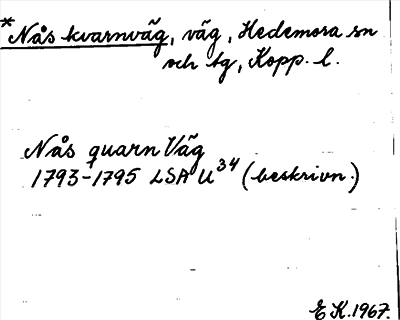 *Nås kvarnväg, väg, Hedemora sn
och tg, Kopp. l.
Nås quarn Väg
1793-1795 LSA U34 (beskrivn.)
E K. 1967.